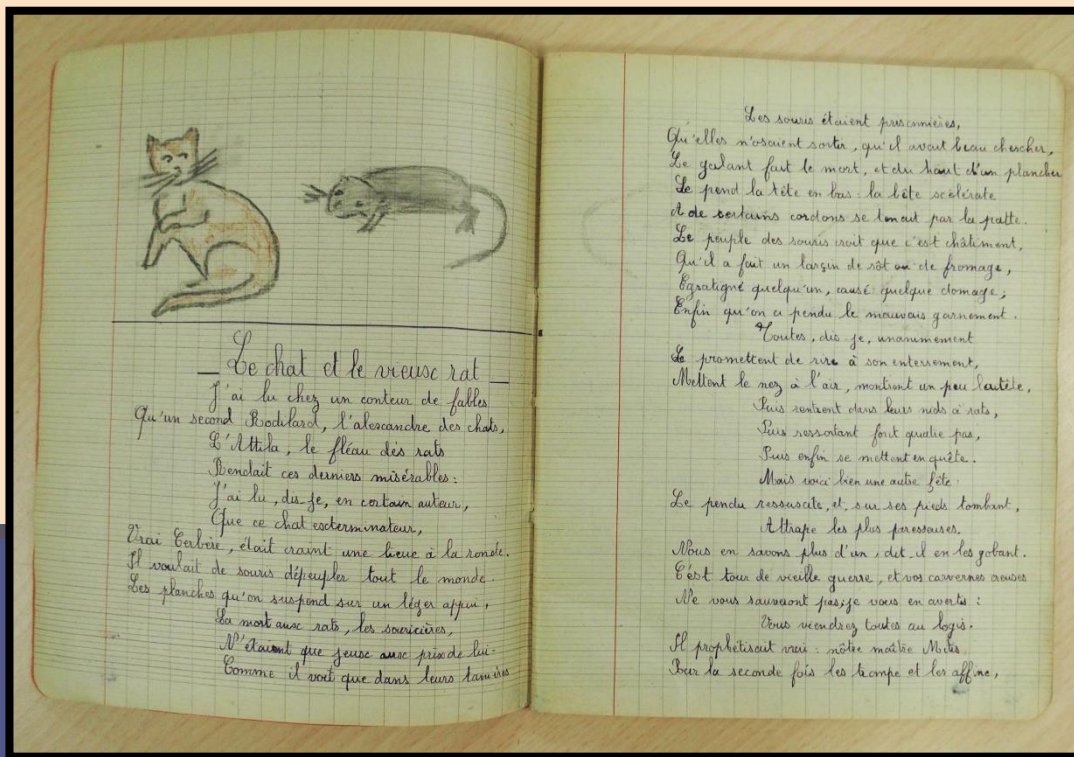 Le chat et le vieux rat
J'ai lu chez un conteur de fables
Qu'un second Rodilard, l'alexandre des chats,
L'Attila, le fléau des rats
Rendait ces derniers misérables :
J'ai lu, dis-je, en certain auteur,
Que ce chat exterminateur,
Vrai Cerbère, était craint une lieue à la ronde.
Il voulait de souris dépeupler tout le monde.
Les planches qu'on suspend sur un léger appui,
La mort aux rats, les souricières,
N'étaient que jeux aux prix de lui.
Comme il voit que dans leurs tanières
Les souris étaient prisonnières,
Qu'elles n'osaient sortir, qu'il avait beau chercher,
Le galant fait le mort, et du haut d'un plancher
Se pend la tête en bas : la bête scélérate
A de certains cordons se tenait par la patte.
Le peuple des souris croit que c'est châtiment,
Qu'il a fait un larçin de rôt ou de fromage,
Egratigné quelqu'un, causé quelque domage ;
Enfin qu'on a pendu le mauvais garnement.
Toutes, dis je, unanimement
Se promettent de rire à son enterrement,
Mettent le nez à l'air, montrent un peu la tête,
Puis rentrent dans leurs nids à rats,
Puis ressortant font quatre pas,
Puis enfin se mettent en quête.
Mais voici bien une autre fête :
Le pendu ressuscite, et, sur ses pieds tombant,
Attrape les plus paresseuses.
Nous en savons plus d'un, dit, il en les gobant.
C'est tour de vieille guerre, et vos cavernes creuses
Ne vous sauveront pas, je vous en avertis :
Vous viendrez toutes au logis.
Il prophétisait vrai : nôtre maître Mitis
Pour la seconde fois les trompe et les affine,